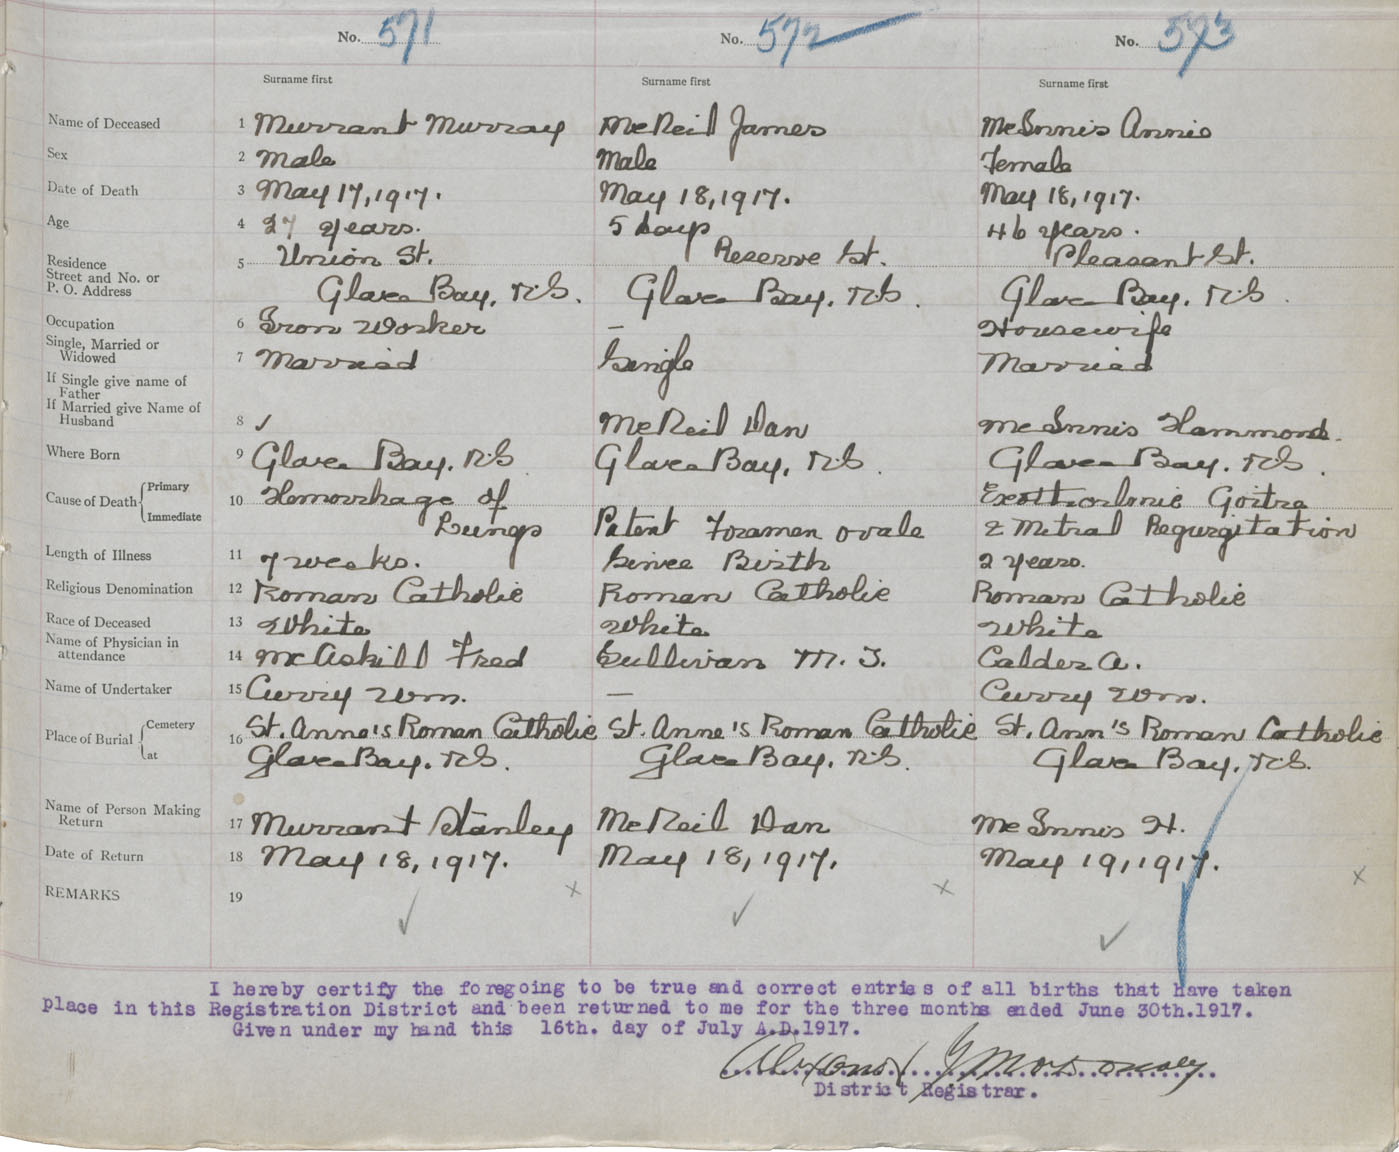 No. 571 No. 572 No. 573
Surname first Surname first Surname first
Name of Deceased 1 Murrant Murray McNeil James McInnis Annie
Sex 2 Male Male Female
Date of Death 3 May 17, 1917. May 18, 1917. May 18, 1917.
Age 4 27 years. 5 days 46 years.
Residence 5 Union St. Reserve St. Pleasant St.
Street and No. or
P. O. Address Glace Bay, N.S. Glace Bay, N.S. Glace Bay, N.S.
Occupation 6 Iron Worker — Housewife
Single, Married or
Widowed 7 Married Single Married
If Single give name of
Father
If Married give Name of
Husband 8 ✓ McNeil Dan McInnis Hammond.
Where Born 9 Glace Bay, N.S. Glace Bay, N.S. Glace Bay, N.S.
Cause of Death Primary 10 Hemorrhage of Exoththalmic Goitre
Immediate Lungs Patent Foramen ovale & Mitral Regurgitation
Length of Illness 11 7 weeks. Since Birth 2 years.
Religious Denomination 12 Roman Catholic Roman Catholic Roman Catholic
Race of Deceased 13 White White White
Name of Physician in
attendance 14 McAskill Fred Sullivan M. T. Calder A.
Name of Undertaker 15 Curry Wm. — Curry Wm.
Place of Burial Cemetery 16 St. Anne's Roman Catholic St. Anne's Roman Catholic St. Ann's Roman Catholic
at Glace Bay, N.S. Glace Bay, N.S. Glace Bay, N.S.
Name of Person Making
Return 17 Murrant Stanley McNeil Dan McInnis H.
Date of Return 18 May 18, 1917. May 18, 1917. May 19, 1917.
REMARKS 19
I hereby certify the foregoing to be true and correct entries of all births that have taken
place in this Registration District and been returned to me for the three months ended June 30th.1917.
Given under my hand this 16th. day of July A.D.1917.
District Registrar.